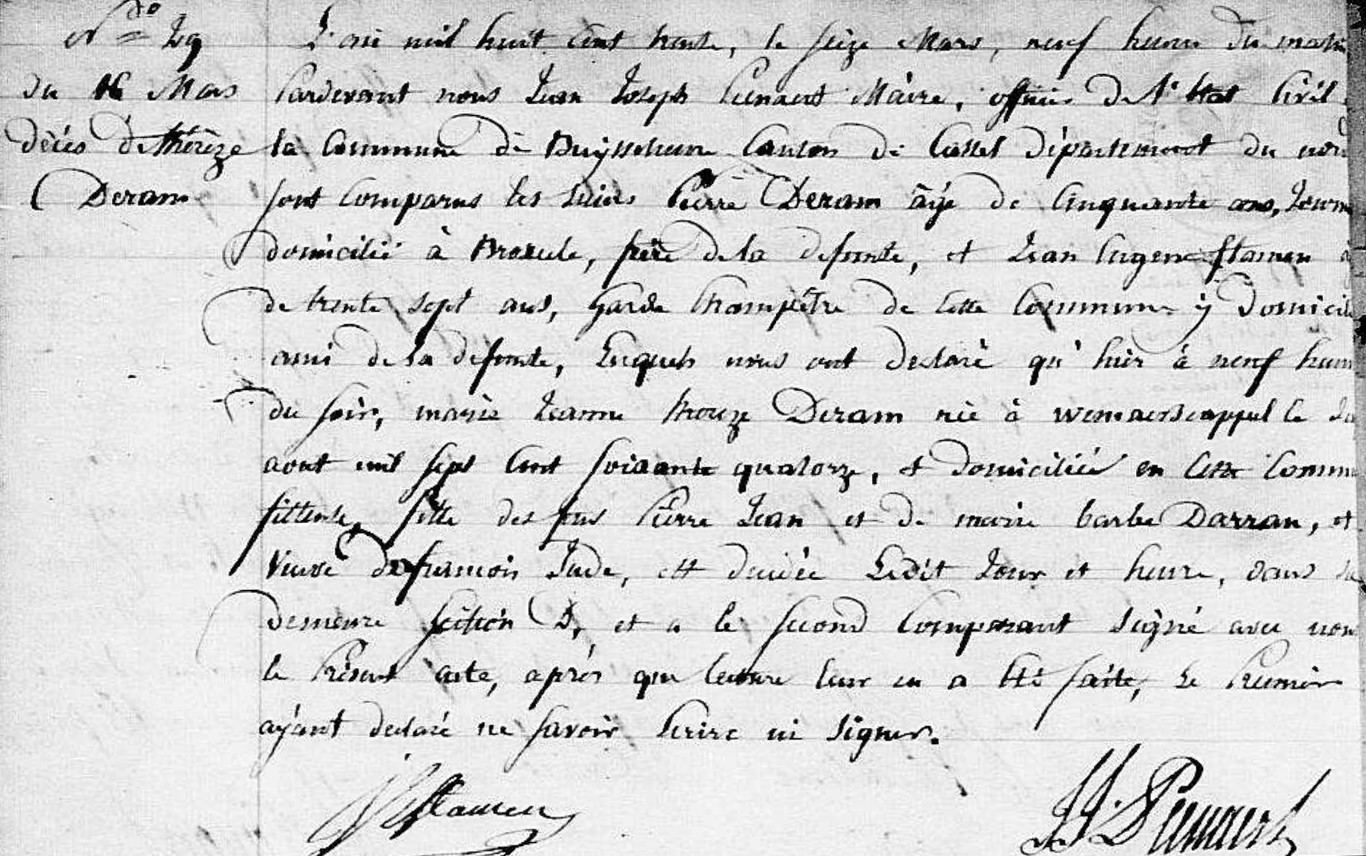 N.do 29
du 16 Mars
décés de thérèze
Deram
L'an mil huit Cent trente, le seize Mars, neuf heures du matin
Pardevant nous Jean Joseph Maire, officier de l'Etat Civil
la Commune de Buysscheure Canton de Cassel département du nord
sont comparus les sieurs Pierre Deram âgé de Cinquante ans,
domicilié à Broxele, frère de la defunte, et Jean Eugene flamen
de trente sept ans, garde Champêtre de cette Commune y domicilié
ami de la defunte, Lesquels nous ont declaré qu'hier à neuf heures
du soir, marie Jeanne threze Deram née à wemaerscappel le
aout mil sept Cent soixante quatorze, et domiciliée en Cette Commune
filleuse, fille des feus Pierre Jean et de marie barbe Darran, et
Veuve de Jude, est decédée Ledit Jour et heure, dans sa
demeure section D, et a le second Comparant Signé avec nous
le Présent acte, après que lecture leur en a Eté faite, Le Premier
ayant declaré ne savoir Ecrire ni Signer.
flamen